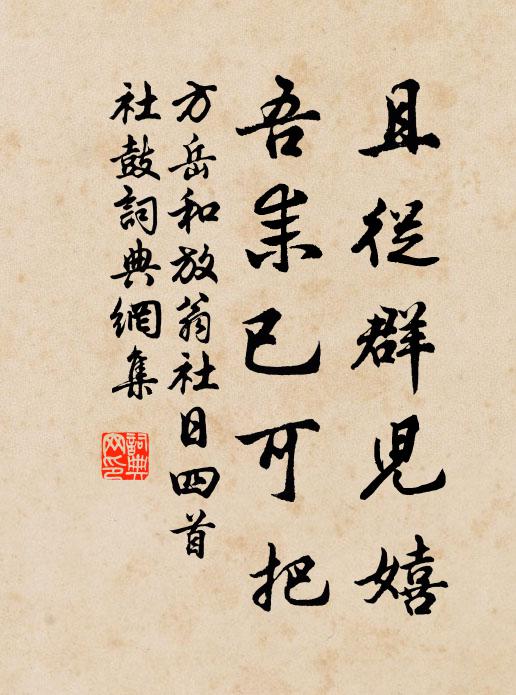 且從群兒嬉
吾耒已可把
方岳和放翁社日四首
社鼓詞典網集
詞典
网印